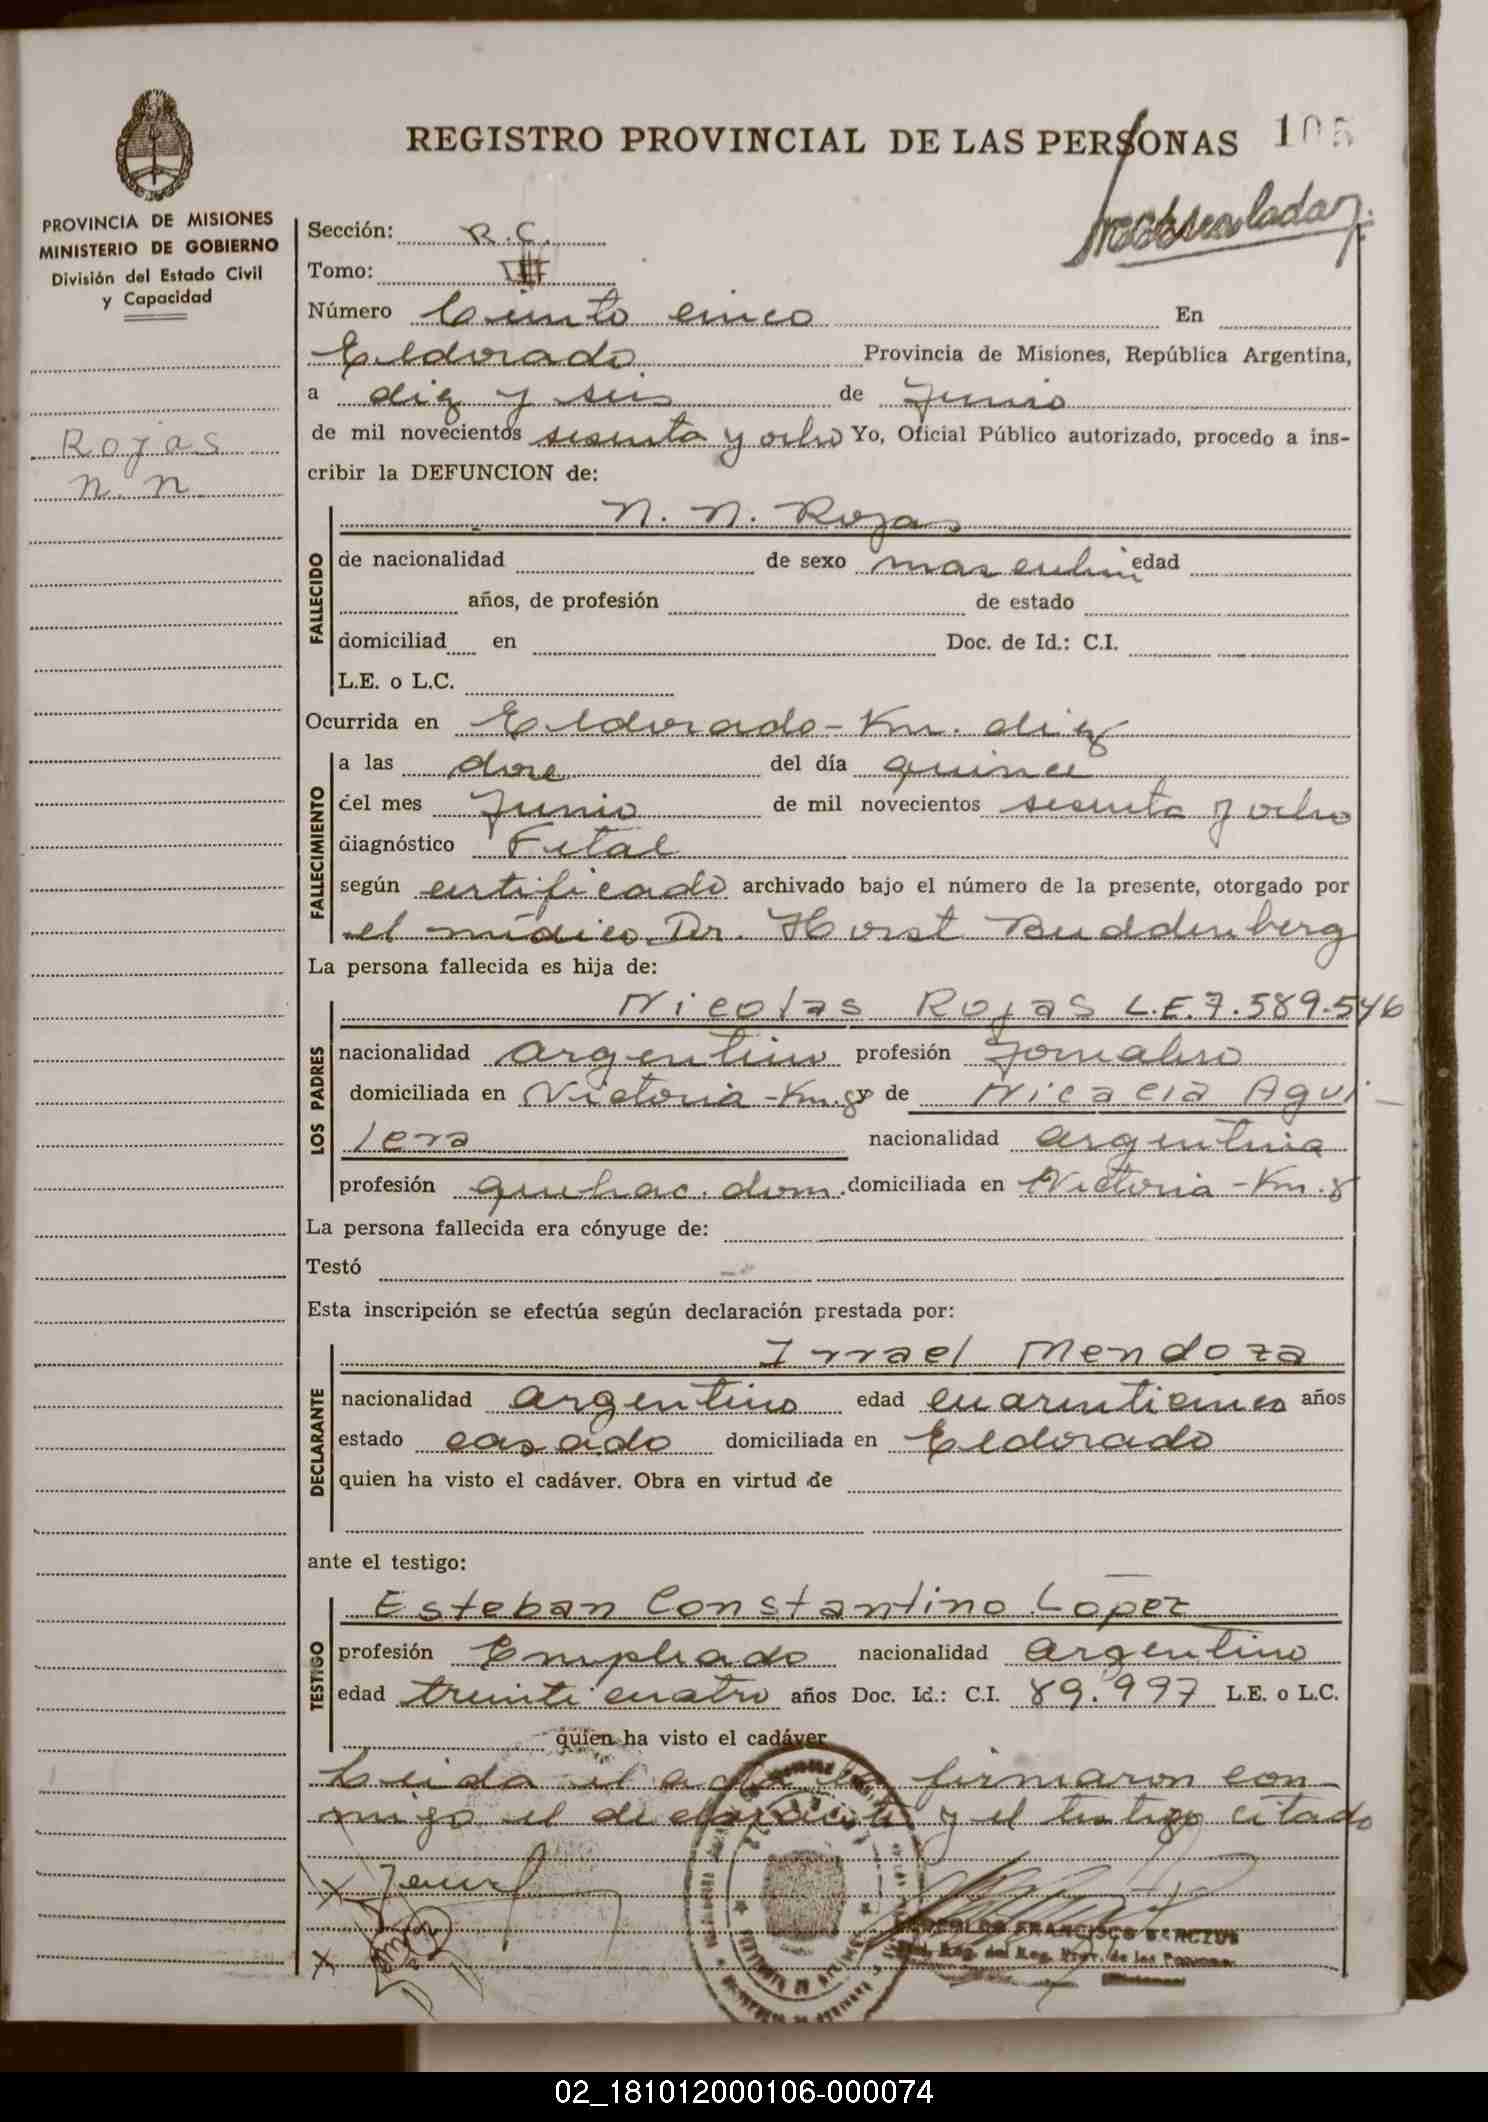 REGISTRO PROVINCIAL DE LAS PERSONAS 105
PROVINCIA DE MISIONES
MINISTERIO DE GOBIERNO
División del Estado Civil
y Capacidad
Rojas
N. N
Sección: R.C.
Tomo: III
Número Ciento cinco En
Eldorado Provincia de Misiones, República Argentina,
a diez y seis de Junio
de mil novecientos sesenta y ocho Yo, Oficial Público autorizado, procedo a ins-
cribir la DEFUNCION de:
N. N. Rojas
FALLECIDO
de nacionalidad de sexo masculino edad
años, de profesión de estado
domiciliad en Doc. de Id.: C.I.
L.E. o L.C.
Ocurrida en Eldorado - Km. diez
FALLECIMIENTO
a las doce del día quince
del mes Junio de mil novecientos sesenta y ocho
diagnóstico Fetal
según certificado archivado bajo el número de la presente, otorgado por
el médico Dr. Horst Buddenberg
La persona fallecida es hija de:
LOS PADRES
Nicolas Rojas L.E. 7.589.546
nacionalidad argentino profesión Jornalero
domiciliada en Victoria - Km. 8 y de Nicacia Agui-
lera nacionalidad argentina
profesión quehac. dom. domiciliada en Victoria - Km. 8
La persona fallecida era cónyuge de:
Testó
Esta inscripción se efectúa según declaración prestada por:
DECLARANTE
Irrael Mendoza
nacionalidad argentino edad cuarenticinco años
estado casado domiciliada en Eldorado
quien ha visto el cadáver. Obra en virtud de
ante el testigo:
TESTIGO
Esteban Constantino Lopez
profesión Empleado nacionalidad argentino
edad treinticuatro años Doc. Id.: C.I. 89.997 L.E. o L.C.
quien ha visto el cadáver
Leida el acta la firmaron con-
migo el declarante y el testigo citado
FRANCISCO
del Reg. Prov. de las Personas
02_181012000106-000074